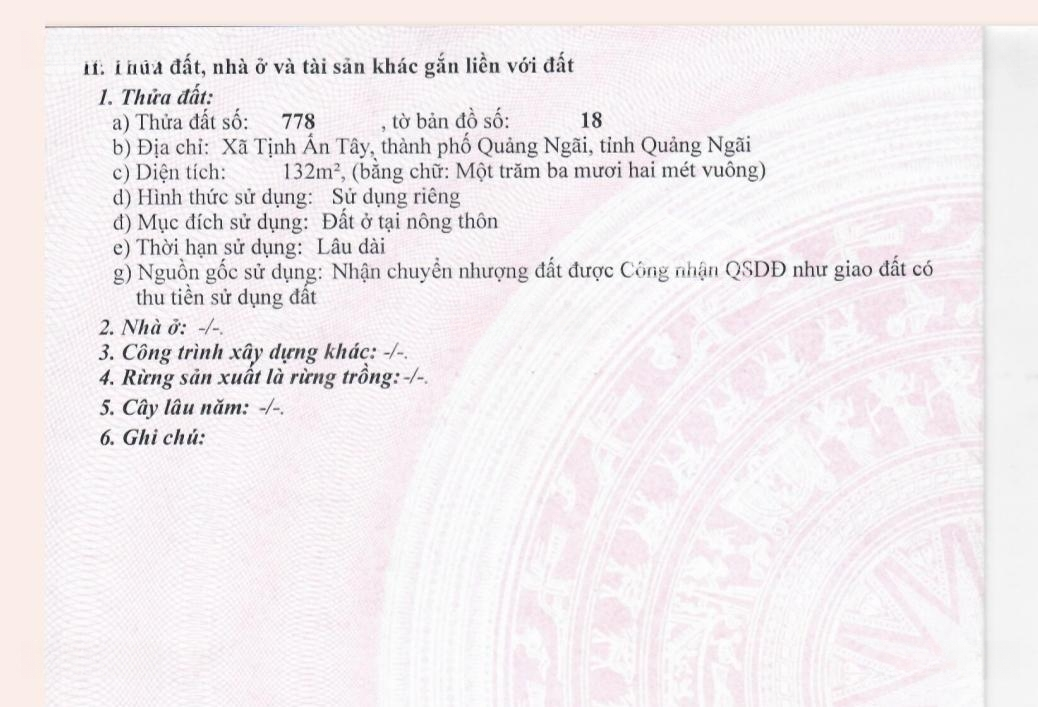 II. Thửa đất, nhà ở và tài sản khác gắn liền với đất
1. Thửa đất:
a) Thửa đất số: 778 , tờ bản đồ số: 18
b) Địa chỉ: Xã Tịnh Ấn Tây, thành phố Quảng Ngãi, tỉnh Quảng Ngãi
c) Diện tích: 132m², (bằng chữ: Một trăm ba mươi hai mét vuông)
d) Hình thức sử dụng: Sử dụng riêng
đ) Mục đích sử dụng: Đất ở tại nông thôn
e) Thời hạn sử dụng: Lâu dài
g) Nguồn gốc sử dụng: Nhận chuyển nhượng đất được Công nhận QSDĐ như giao đất có
thu tiền sử dụng đất
2. Nhà ở: -/-.
3. Công trình xây dựng khác: -/-.
4. Rừng sản xuất là rừng trồng: -/-.
5. Cây lâu năm: -/-.
6. Ghi chú: